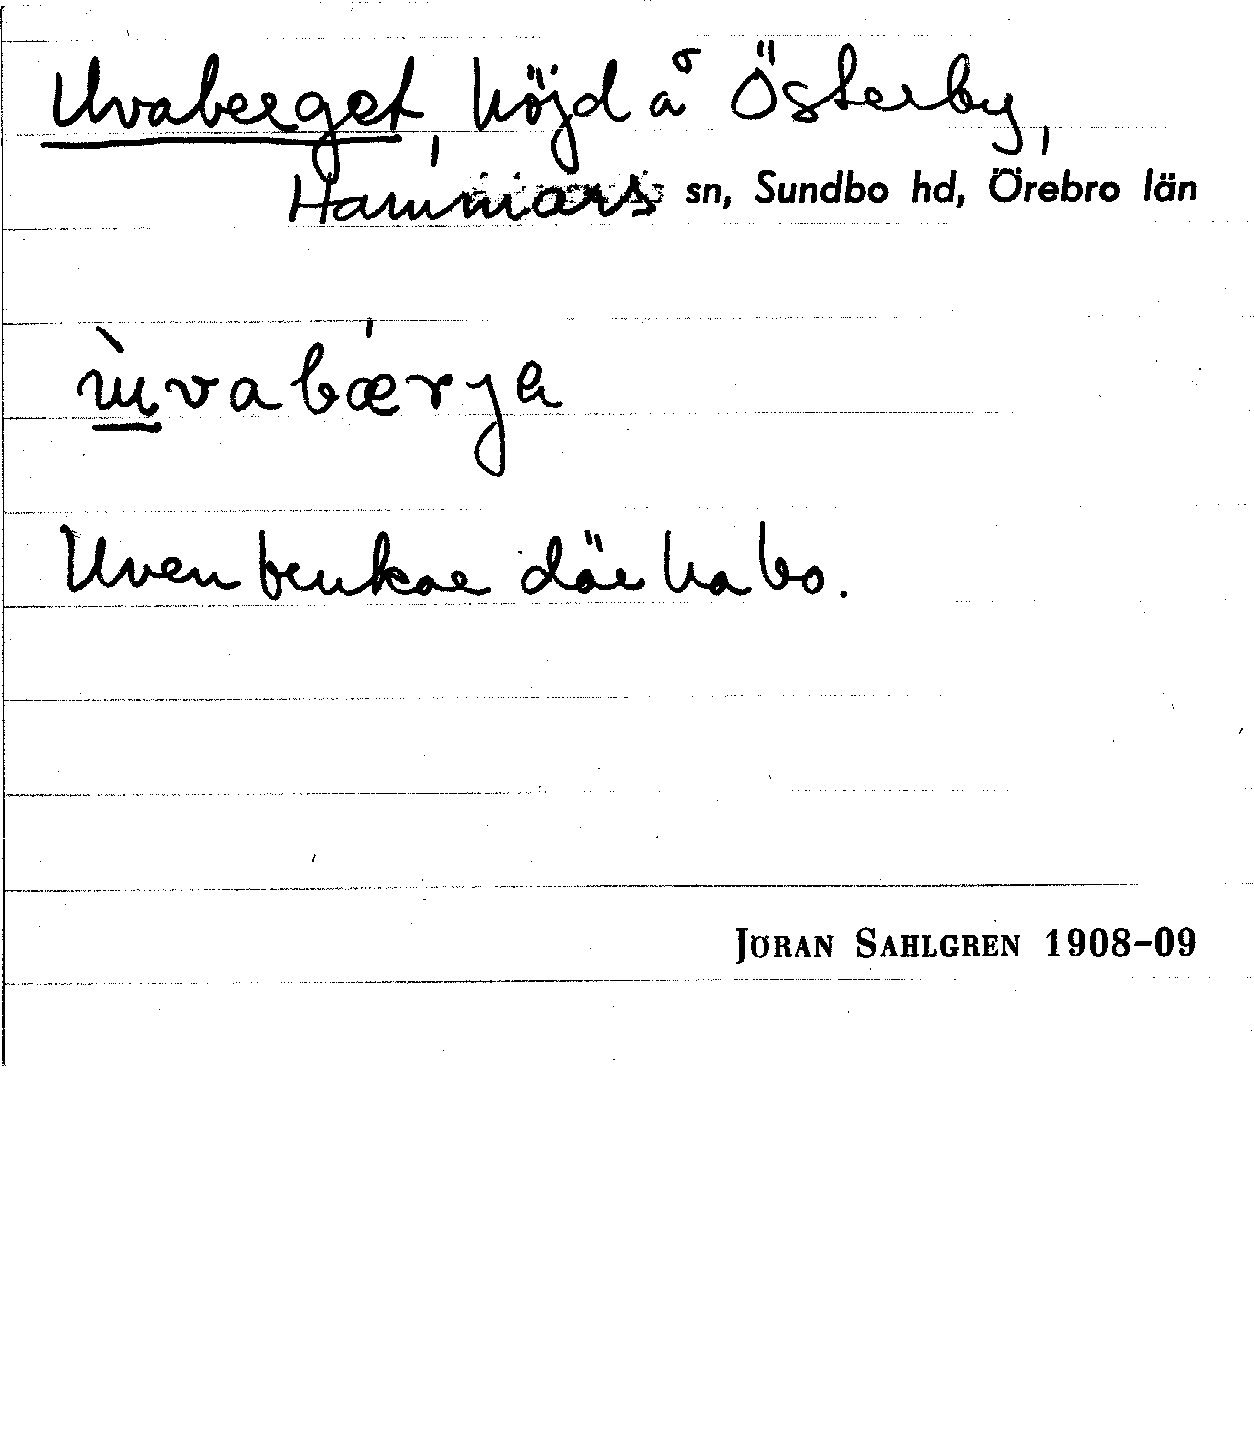 Uvaberget, höjd å Österby,
Hammars sn, Sundbo hd, Örebro län
ùvabǽrja
Uven brukar där ha bo.
JÖRAN SAHLGREN 1908–09